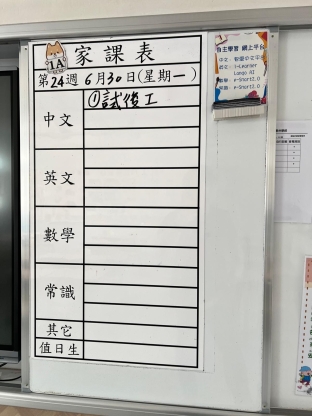 1A
家課表
第24週 6月30日(星期一)
中文
①試後工
英文
數學
常識
其它
值日生
自主學習 網上平台
i-Learner
e-Smart2.0
e-Smart2.0